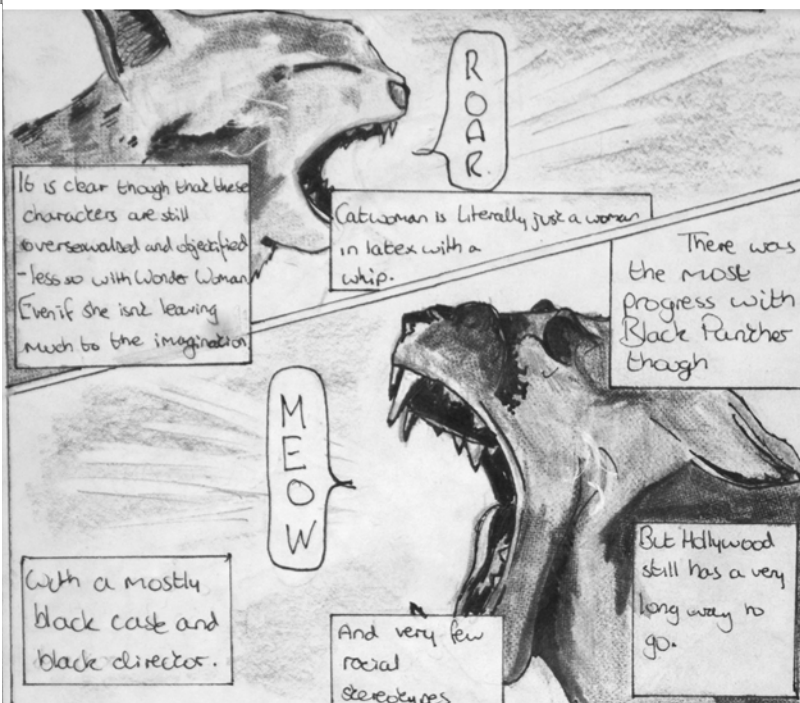 ROAR.
It is clear though that these
characters are still
oversexualised and objectified
- less so with Wonder Woman
Even if she isn't leaving
much to the imagination
Catwoman is literally just a woman
in latex with a
whip.
There was
the most
progress with
Black Panther
though
MEOW
With a mostly
black cast and
black director.
And very few
racial
stereotypes
But Hollywood
still has a very
long way to
go.